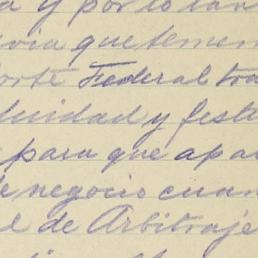 a y por lo tan
que temem
orte Federal tra
y feste
para que apa
e negocio cuan
l de Arbitraje